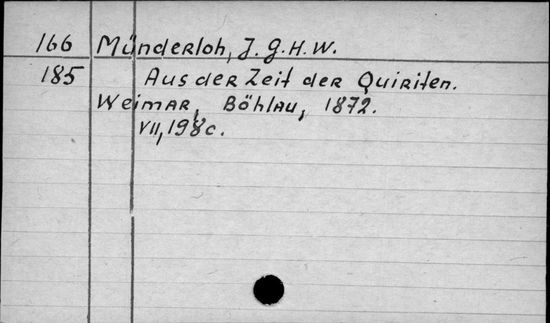 166 Münderloh, J. G. H. W.
185 Aus der Zeit der Quiriten.
Weimar, Böhlau, 1872.
VII, 198c.